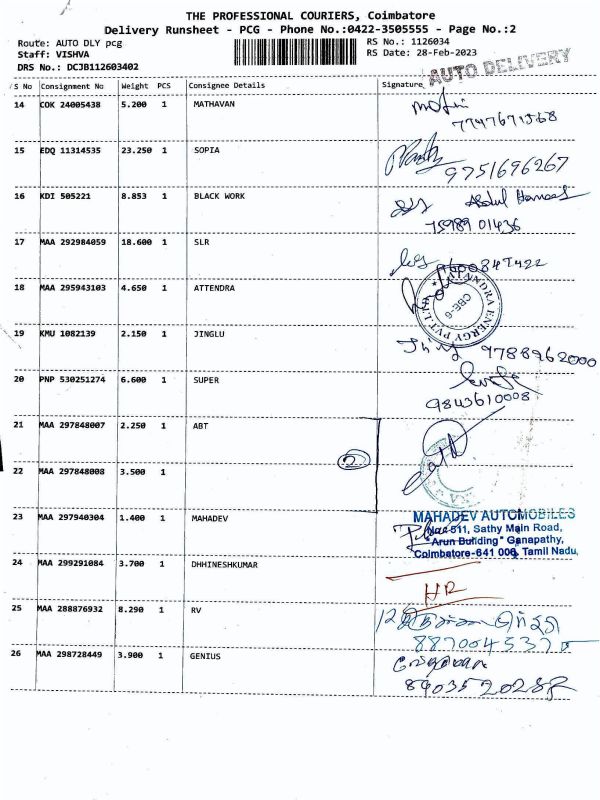 THE PROFESSIONAL COURIERS, Coimbatore
Delivery Runsheet - PCG - Phone No.:0422-3505555 - Page No.:2
Route: AUTO DLY pcg
Staff: VISHVA
DRS No.: DCJB112603402
RS No.: 1126034
RS Date: 28-Feb-2023
AUTO DELIVERY
S No Consignment No Weight PCS Consignee Details Signature
14 COK 24005438 5.200 1 MATHAVAN
7747671568
15 EDQ 11314535 23.250 1 SOPIA
9751696267
16 KDI 505221 8.853 1 BLACK WORK
Abdul
75989 01436
17 MAA 292984059 18.600 1 SLR
18 MAA 295943103 4.650 1 ATTENDRA
ENERGY PVT. LTD
CBE-6
19 KMU 1082139 2.150 1 JINGLU
9788962000
20 PNP 530251274 6.600 1 SUPER
9843610008
21 MAA 297848007 2.250 1 ABT
2
22 MAA 297848008 3.500 1
23 MAA 297940304 1.400 1 MAHADEV
MAHADEV AUTOMOBILES
No. 511, Sathy Main Road,
"Arun Building" Ganapathy,
Coimbatore-641 006, Tamil Nadu,
24 MAA 299291084 3.700 1 DHHINESHKUMAR
HR
25 MAA 288876932 8.290 1 RV
26 MAA 298728449 3.900 1 GENIUS